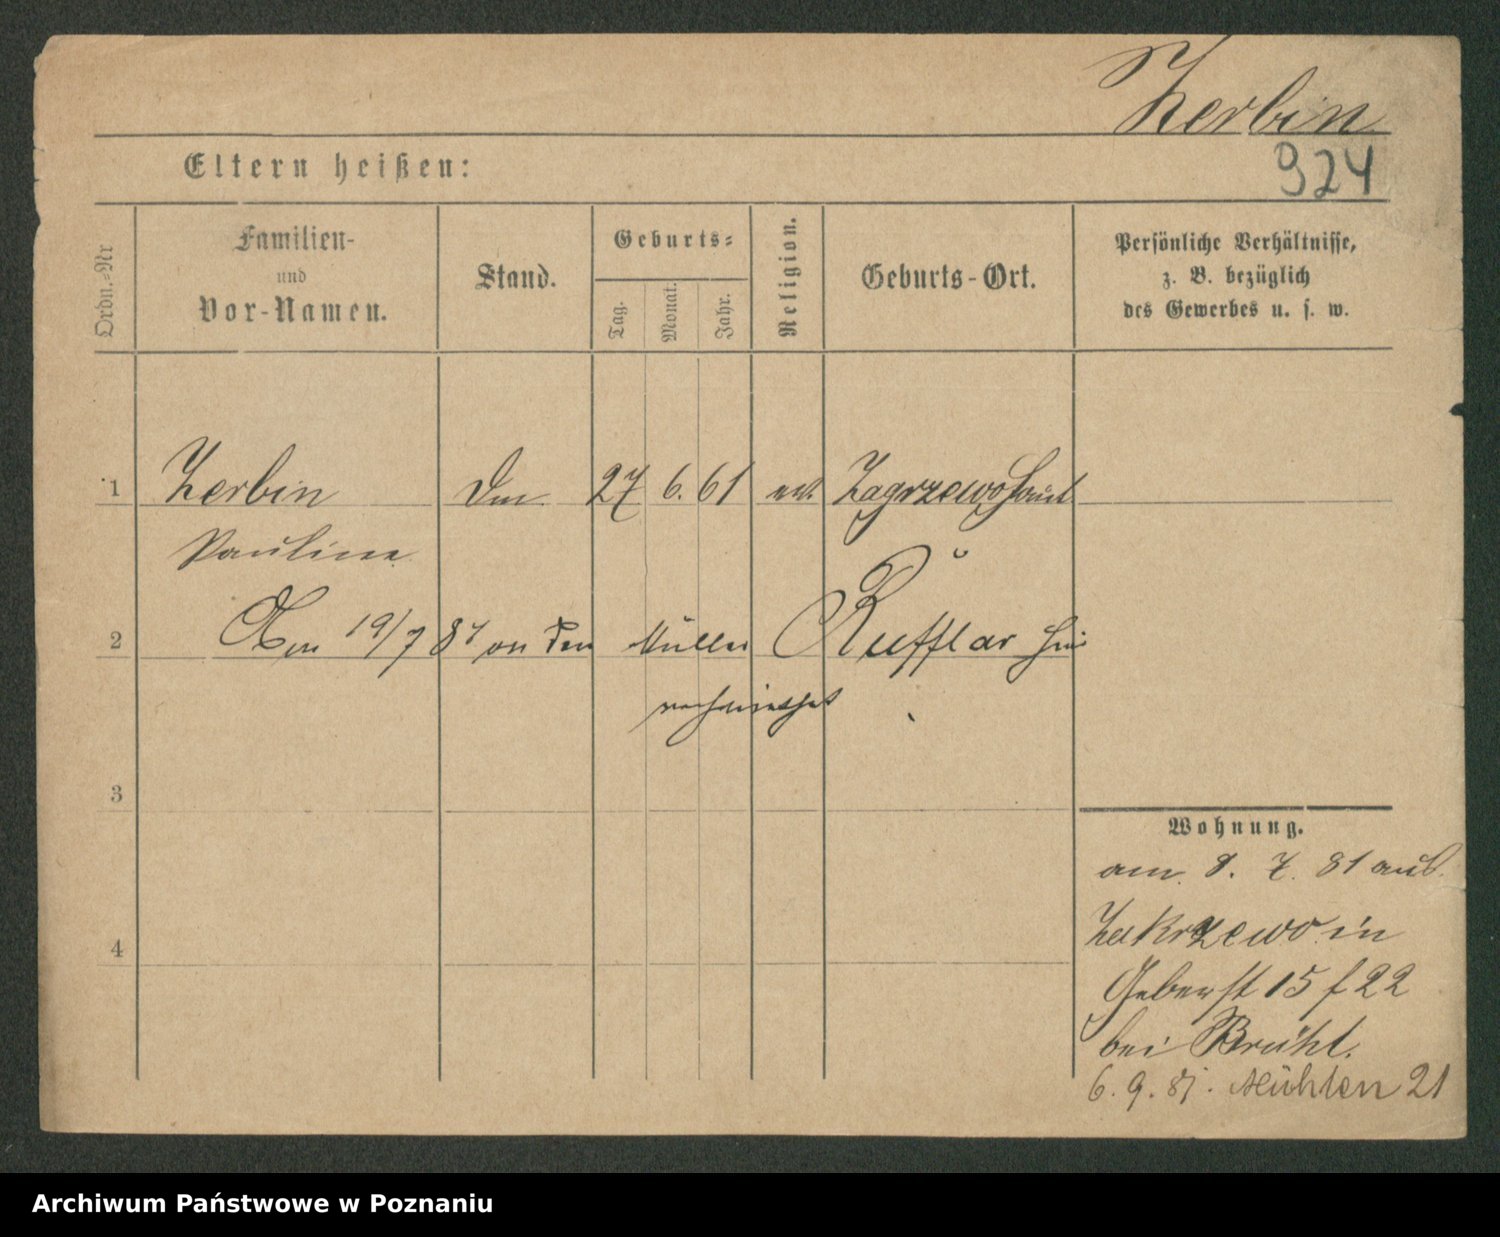 Zerbin
924
Eltern heißen:
Ordn.-Nr
Familien-
und
Vor-Namen.
Stand.
Geburts-
Tag.
Monat.
Jahr.
Religion.
Geburts-Ort.
Persönliche Verhältnisse,
z. B. bezüglich
des Gewerbes u. s. w.
1 Zerbin 27 6. 61 Zagrzewo
Pauline
2 19/7 an den Müller Rufflar
verheirathet
3
Wohnung.
am 8. 7. 81 aus
Zakrzewo in
Geberst 15 f 22
4
bei Brühl.
6. 9. 81. Mühlen 21
Archiwum Państwowe w Poznaniu